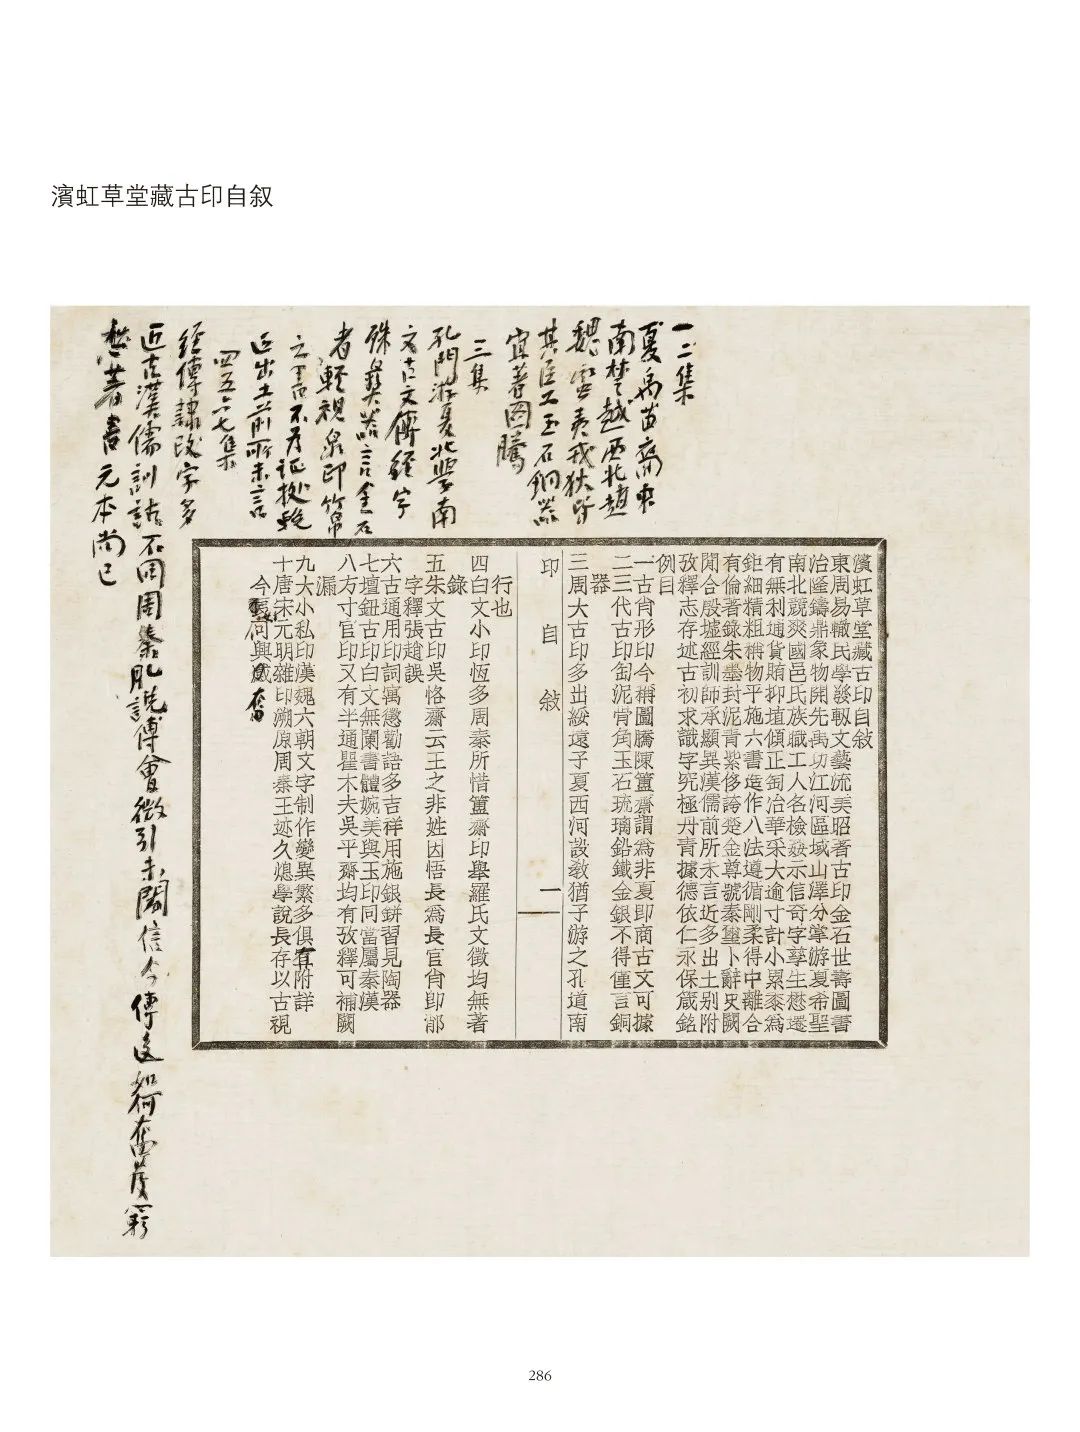 濱虹草堂藏古印自叙
一二集
夏禹苗裔東
南楚越西北趙
魏雲夷戎狄皆
其臣工玉石銅器
宜著圖騰
三集
孔門游夏北學南
文古文傳經字
殊彝器言金石
者輕視泉印竹帛
之書不為証據致
近出土前所未言
四五六七集
經傳隸改字多
近古漢儒訓詁不同周秦肊說傅會徵引未闕信今傳後如何奮發窮
愁著書元本尚已
濱虹草堂藏古印自敍
東周易轍民學發軔文藝流美昭著古印金石世壽圖書
治隆鑄鼎象物開先禹功江河區域山澤分掌游夏希聖
南北競爽國邑氏族職工人名檢姦示信奇字孳生懋遷
有無利通貨賄抑埴傾正匋冶華采大逾寸計小累黍爲
鉅細精粗稱物平施六書造作八法遵循剛柔得中離合
有倫著錄朱墨封泥青紫侈誇楚金尊號秦璽卜辭史闕
閒合殷墟經訓師承顯異漢儒前所未言近多出土别附
攷釋志存述古初求識字究極丹青據德依仁永保箴銘
例目
一古肖形印今稱圖騰陳簠齋謂爲非夏即商古文可據
二三代古印匋泥骨角玉石琉璃鉛鐵金銀不得僅言銅
器
三周大古印多出綏遠子夏西河設教猶子游之孔道南
印自敍
一
行也
四白文小印恆多周秦所惜簠齋印舉羅氏文徵均無著
錄
五朱文古印吳愙齋云王之非姓因悟長爲長官肖即鄁
字釋張趙誤
六古通用印詞寓懲勸語多吉祥用施銀鉼習見陶器
七壇鈕古印白文無闌書體婉美與玉印同當屬秦漢
八方寸官印又有半通瞿木夫吳平齋均有攷釋可補闕
漏
九大小私印漢魏六朝文字制作變異繁多俱有附詳
十唐宋元明雜印溯原周秦王迹久熄學說長存以古視
今奚何興感
奮
286